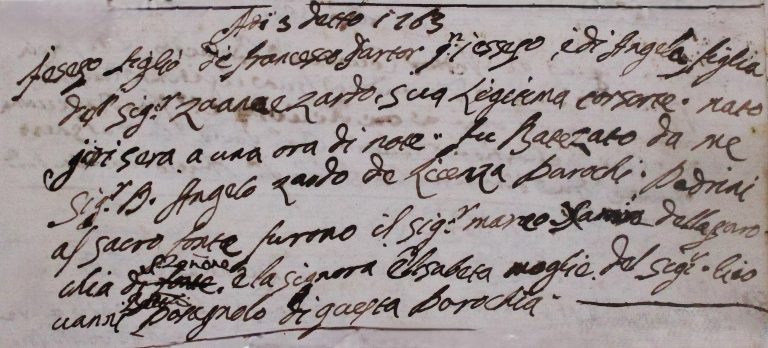 Adi 3 detto 1763
Jesepo figlio de francesco Sartor jesepo, e di Angela figlia
del sig.r Zuanne Zardo, sua Legitima consorte. nato
jeri sera a una ora di note. fu Batezato da me
sig.r D. Angelo Zardo de Licenza Parochi. Padrini
al sacro fonte furono il sig.r marco della paro
chia di e la signora Elisabeta moglie del sig.r Gio
vanni di questa Parochia